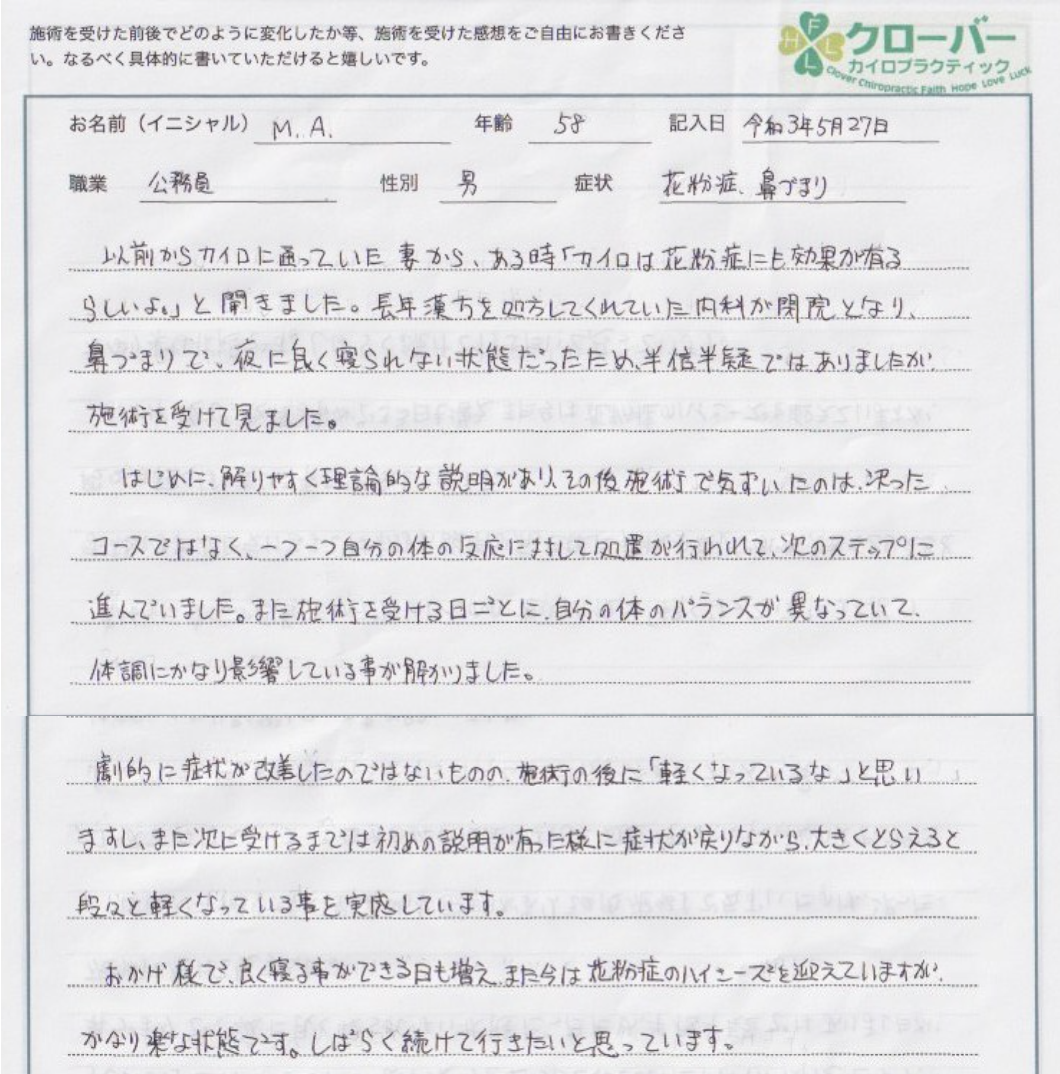 施術を受けた前後でどのように変化したか等、施術を受けた感想をご自由にお書きくださ
い。なるべく具体的に書いていただけると嬉しいです。
F H L L
クローバー
カイロプラクティック
Clover Chiropractic Faith Hope Love Luck
お名前（イニシャル） M.A. 年齢 58 記入日 令和3年5月27日
職業 公務員 性別 男 症状 花粉症、鼻づまり
以前からカイロに通っていた妻から、ある時「カイロは花粉症にも効果が有る
らしいよ。」と聞きました。長年漢方を処方してくれていた内科が閉院となり、
鼻づまりで、夜に良く寝られない状態だったため、半信半疑ではありましたが、
施術を受けて見ました。
はじめに、解りやすく理論的な説明があり、その後施術で気ずいたのは、決った
コースではなく、一つ一つ自分の体の反応にまして処置が行われて、次のステップに
進んでいました。また施術を受ける日ごとに、自分の体のバランスが異なっていて、
体調にかなり影響している事が解かりました。
劇的に症状が改善したのではないものの、施術の後に「軽くなっているな」と思い
ますし、また次に受けるまでは初めの説明が有った様に症状が戻りながら、大きくとらえると
段々と軽くなっている事を実感しています。
おかげ様で、良く寝る事ができる日も増え、また今は花粉症のハイシーズンを迎えていますが、
かなり楽な状態です。しばらく続けて行きたいと思っています。